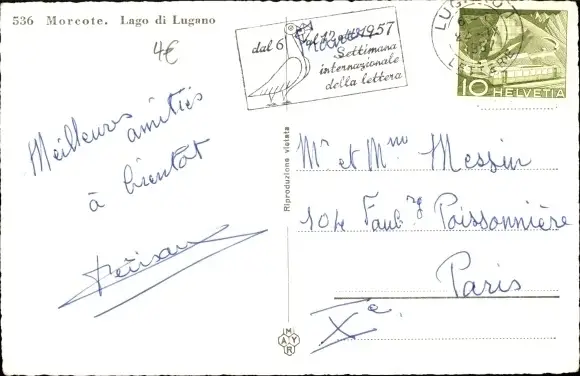 536 Morcote. Lago di Lugano
4€
dal 6 al 12 ott 1957
Settimana
internazionale
della lettera
LUGANO 1
LETTERE
10 HELVETIA
Meilleurs amitiés
à bientot
Riproduzione vietata
Mr et Mme Messin
104 Faubrg Poissonnière
Paris
Xe.
MAYR